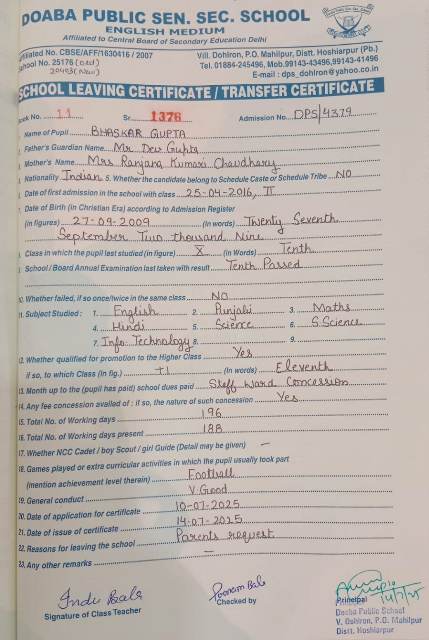 DOABA PUBLIC SEN. SEC. SCHOOL
ENGLISH MEDIUM
Affiliated to Central Board of Secondary Education Delhi
Affiliated No. CBSE/AFF/1630416 / 2007
Vill. Dohiron, P.O. Mahilpur, Distt. Hoshiarpur (Pb.)
School No. 25176 (Old)
Tel. 01884-245496, Mob.99143-43496,99143-41496
20493 (New)
E-mail : dps_dohiron@yahoo.co.in
SCHOOL LEAVING CERTIFICATE / TRANSFER CERTIFICATE
Book No. 11 Sr. 1376 Admission No. DPS/4379
Name of Pupil BHASKAR GUPTA
Father's Guardian Name Mr. Dev Gupta
Mother's Name Mrs Ranjana Kumari Chaudhary
Nationality Indian 5. Whether the candidate belong to Schedule Caste or Schedule Tribe NO
Date of first admission in the school with class 25-04-2016, II
Date of Birth (in Christian Era) according to Admission Register
(in figures) 27-09-2009 (in words) Twenty Seventh
September Two thousand Nine
Class in which the pupil last studied (in figure) X (in Words) Tenth
School / Board Annual Examination last taken with result Tenth Passed
10. Whether failed, if so once/twice in the same class NO
11. Subject Studied : 1. English 2. Punjabi 3. Maths
4. Hindi 5. Science 6. S.Science
7. Info. Technology 8. 9.
12. Whether qualified for promotion to the Higher Class Yes
if so, to which Class (in fig.) +1 (in Words) Eleventh
13. Month up to the (pupil has paid) school dues paid Staff Ward Concession
14. Any fee concession availed of : if so, the nature of such concession Yes
15. Total No. of Working days 196
16. Total No. of Working days present 188
17. Whether NCC Cadet / boy Scout / girl Guide (Detail may be given) —
18. Games played or extra curricular activities in which the pupil usually took part
(mention achievement level therein) Football
19. General conduct V.Good
20. Date of application for certificate 10-07-2025
21. Date of issue of certificate 14-07-2025
22. Reasons of leaving the school Parents request
23. Any other remarks —
Indu Bala
Signature of Class Teacher
Poonam Bala
Checked by
14/7/25
Principal
Doaba Public School
V. Dohiron, P.O. Mahilpur
Distt. Hoshiarpur